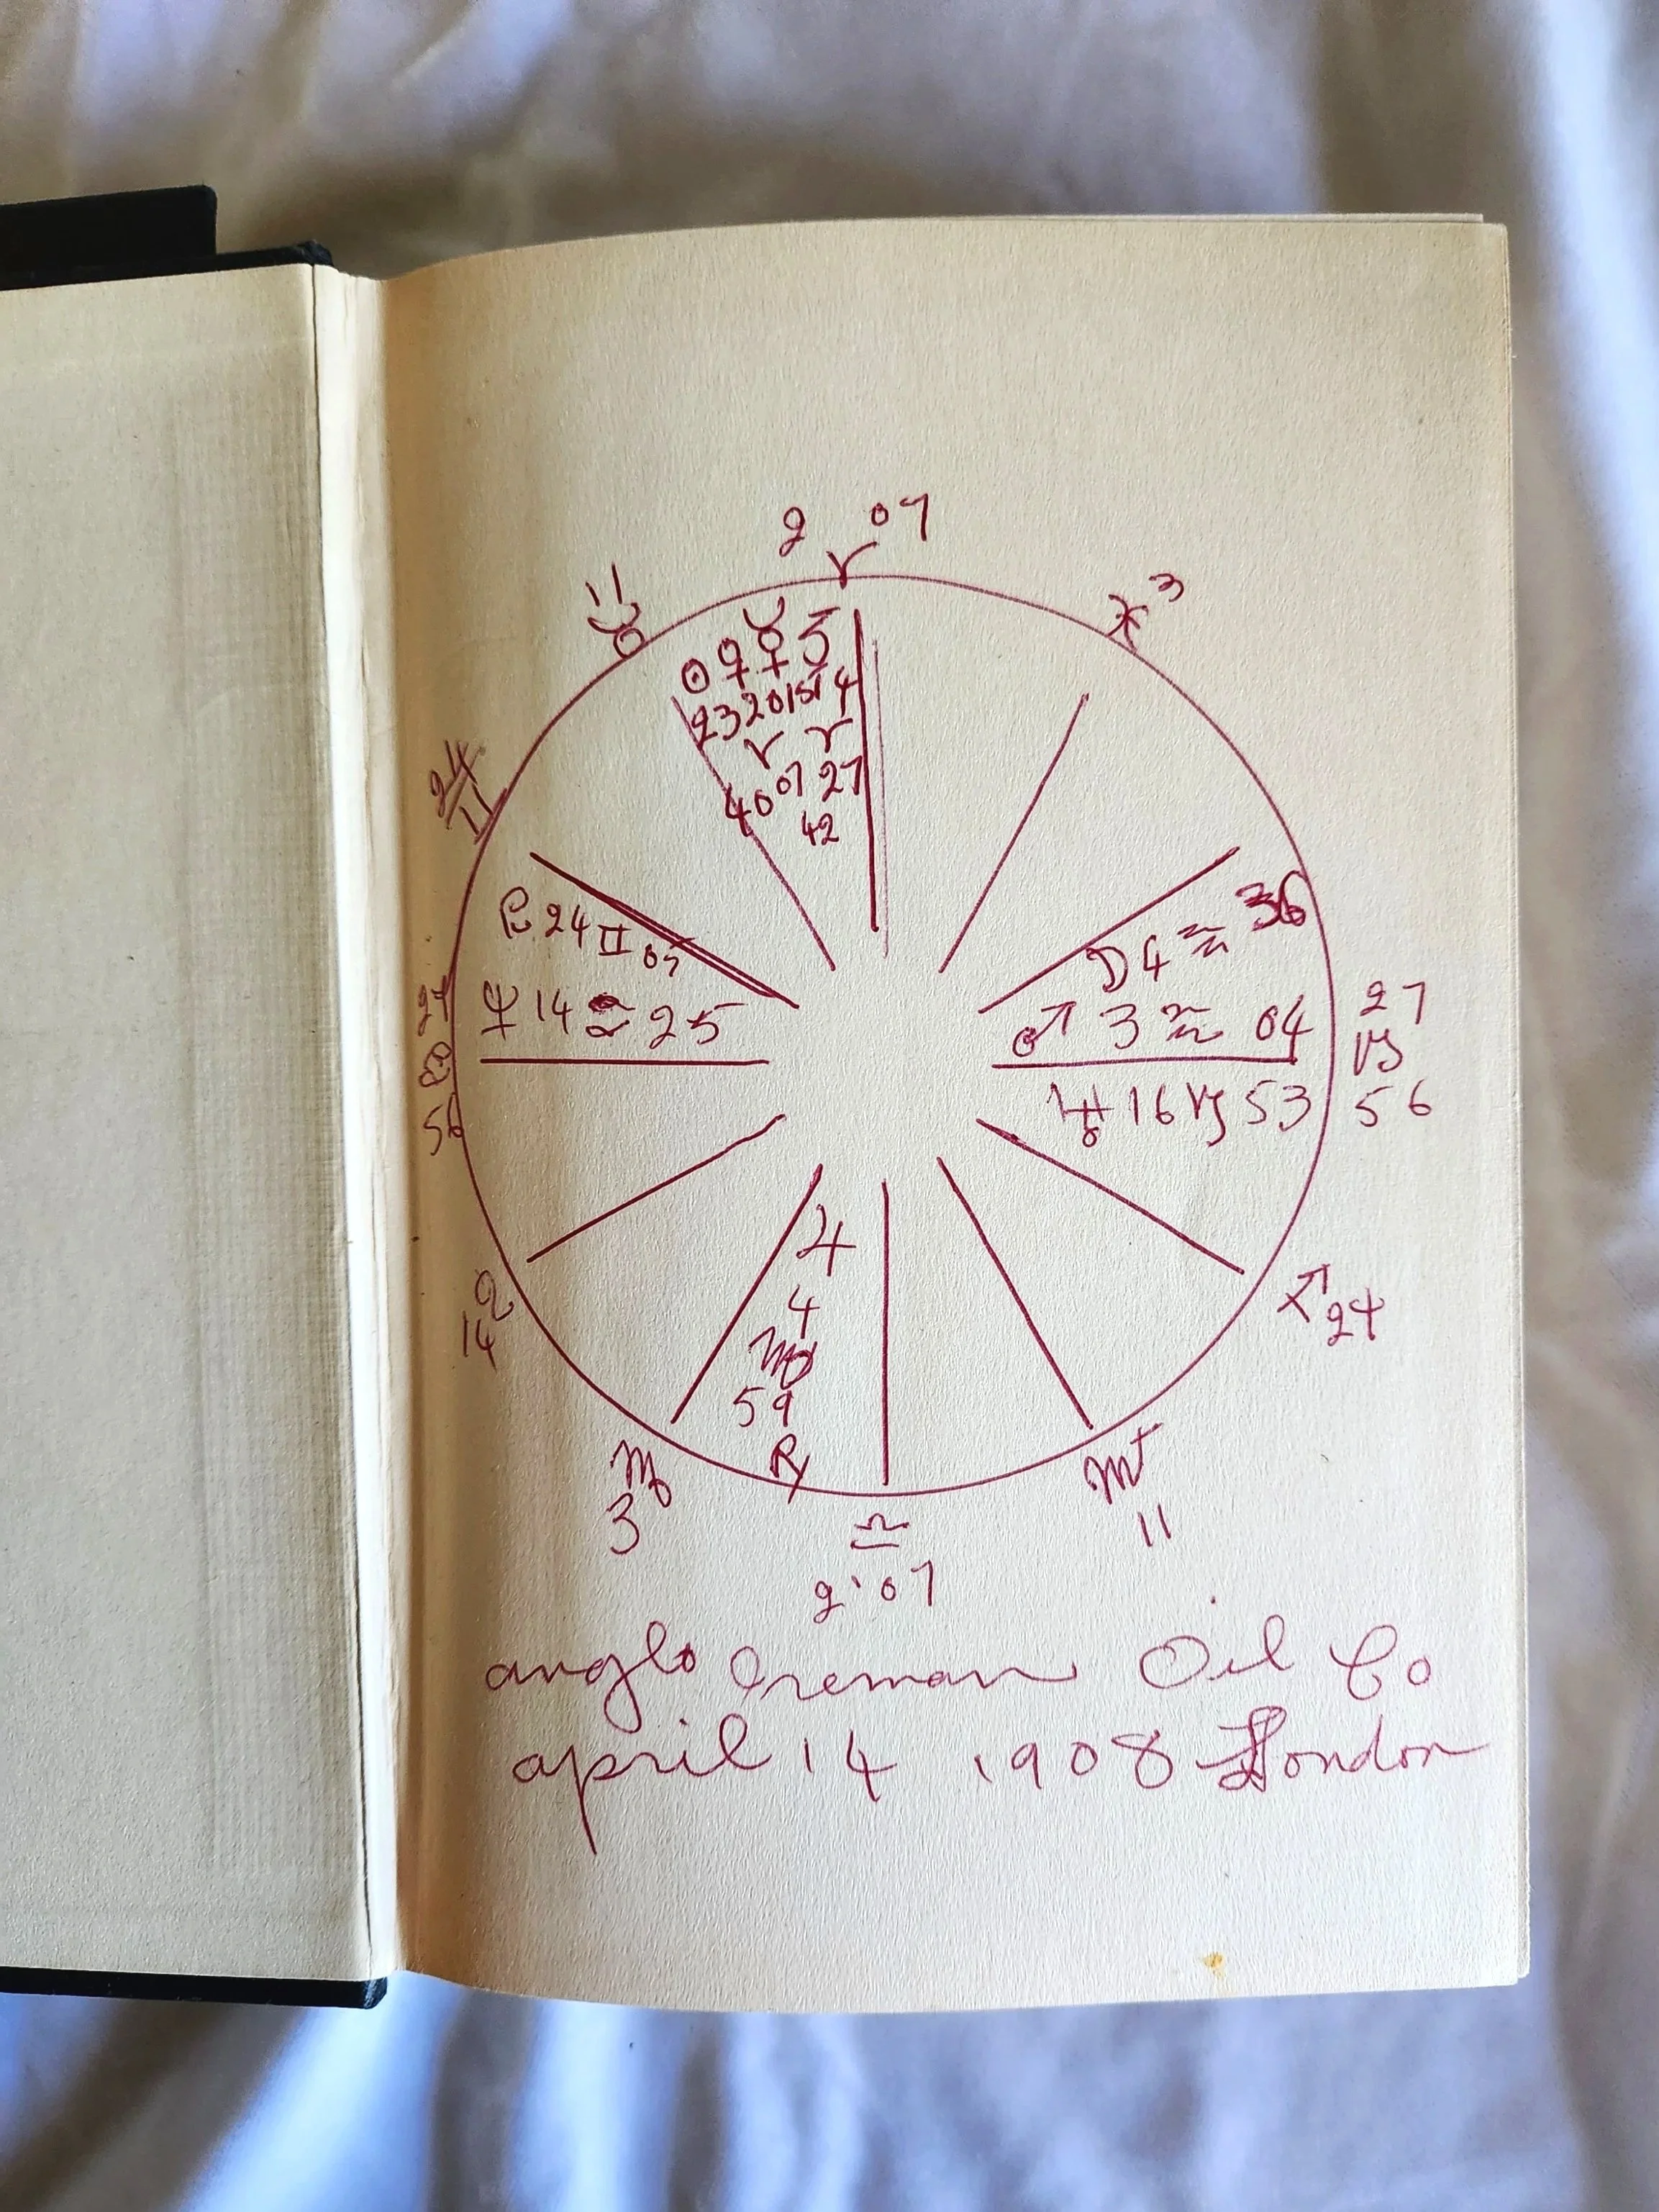 2 ♈ 07
11 ♉
♓ 3
☉ ♀ ☿ ♄
23 20 15 14
♈ ♈
40 07 27
42
24 ♊
P 24 ♊ 05
☽ 4 ♒ 36
♆ 14 ♋ 25
♂ 3 ♒ 04
27 ♋ 56
27 ♑ 56
♅ 16 ♑ 53
14 ♌
♃
4
♍
59
℞
♐ 24
♍ 3
♏ 11
♎
2 07
anglo Oil Co
april 14 1908 London